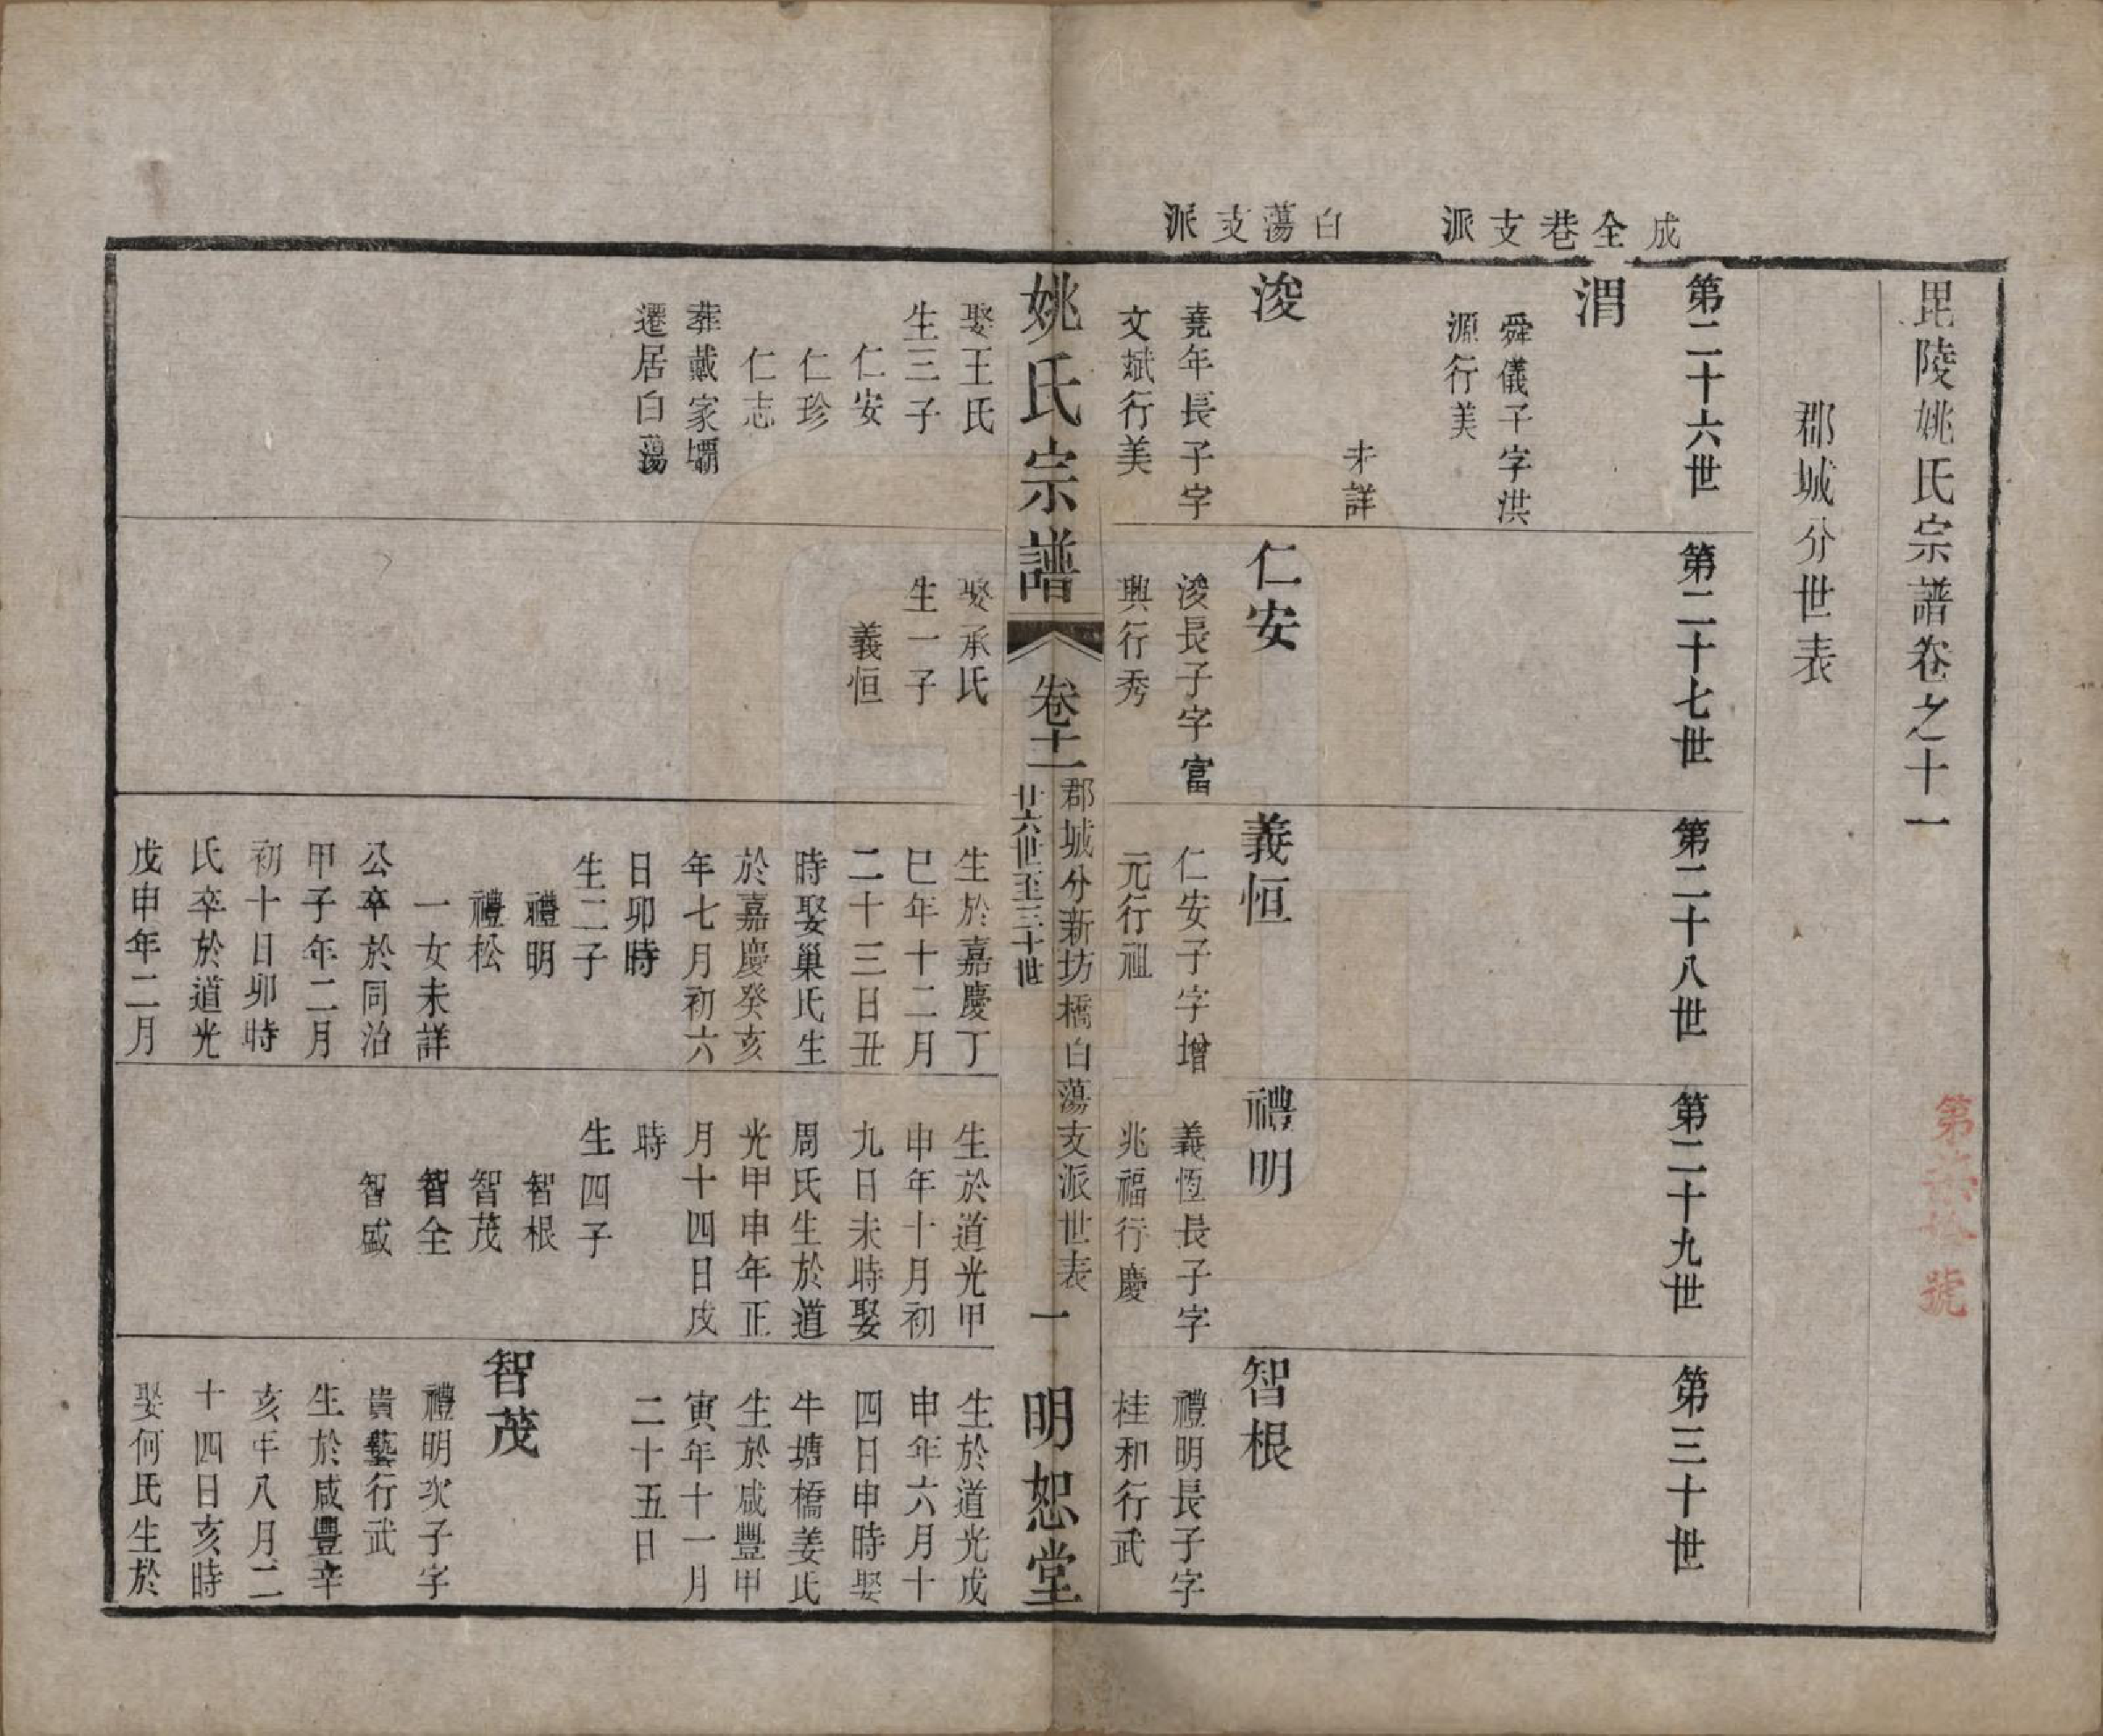 毘陵姚氏宗譜卷之十一
郡城分世表
成全巷支派
白蕩支派
第二十六世
渭
舜儀子字洪
源行美
未詳
浚
堯年長子字
文斌行美
娶王氏
生三子
仁安
仁珍
仁志
葬戴家壩
遷居白蕩
第二十七世
仁安
浚長子字富
興行秀
娶承氏
生一子
義恒
第二十八世
義恒
仁安子字增
元行祖
生於嘉慶丁
巳年十二月
二十三日丑
時娶巢氏生
於嘉慶癸亥
年七月初六
日卯時
生二子
禮明
禮松
一女未詳
公卒於同治
甲子年二月
初十日卯時
氏卒於道光
戊申年二月
第二十九世
禮明
義恆長子字
兆福行慶
生於道光甲
申年十月初
九日未時娶
周氏生於道
光甲申年正
月十四日戌
時
生四子
智根
智茂
智全
智盛
第三十世
智根
禮明長子字
桂和行武
生於道光戊
申年六月十
四日申時娶
牛塘橋姜氏
生於咸豐甲
寅年十一月
二十五日
智茂
禮明次子字
貴藝行武
生於咸豐辛
亥年八月二
十四日亥時
娶何氏生於
姚氏宗譜
卷十一
郡城分新坊橋白蕩支派世表
廿六世至三十世
一
明恕堂
第
號